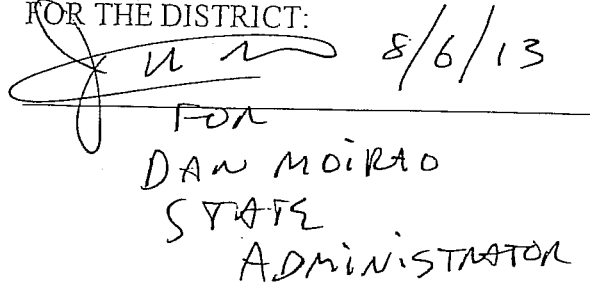 FOR THE DISTRICT:
8/6/13
FOR
DAN MOIRAO
STATE
ADMINISTRATOR